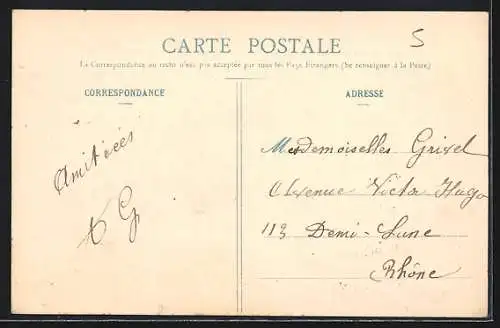 CARTE POSTALE
5
La Correspondance au recto n'est pas acceptée par tous les Pays Etrangers (Se renseigner à la Poste)
CORRESPONDANCE
Amitiées
G
ADRESSE
Mesdemoiselles Grivel
Avenue Victor Hugo
113 Demi-Lune
Rhône